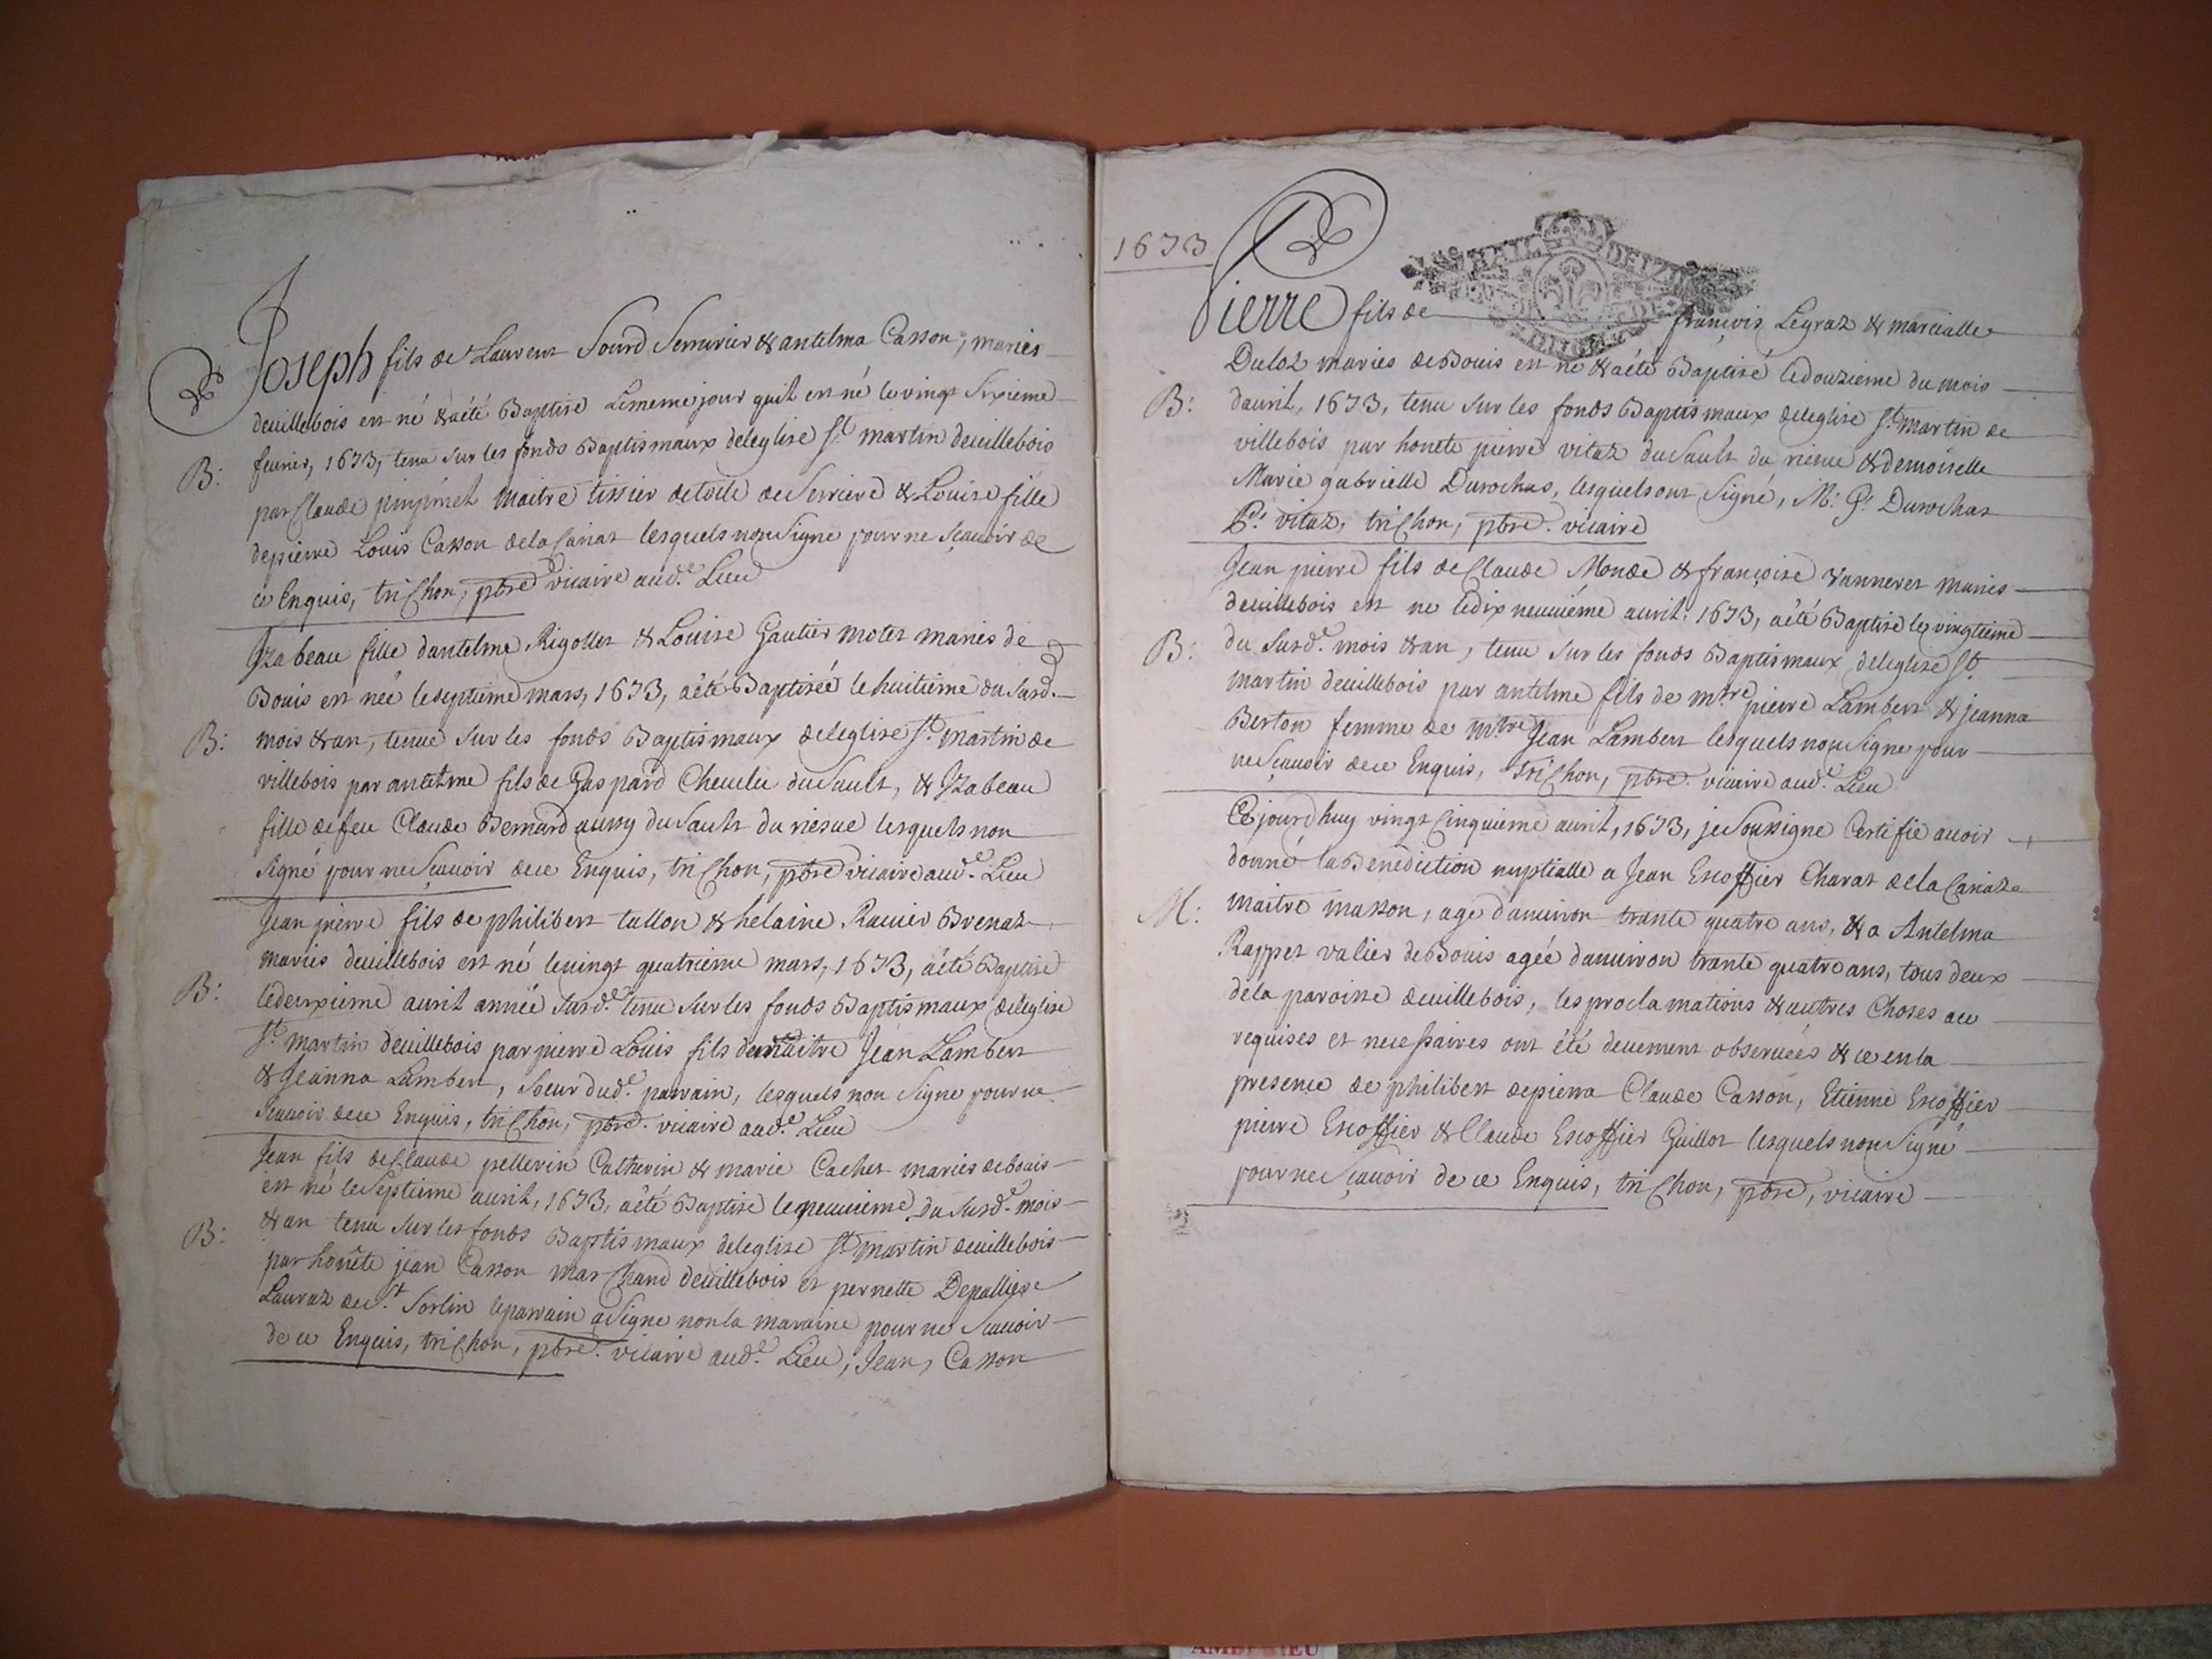 Joseph fils de Laurent Sourd Serrurier & antelma Casson, mariés
deuillebois est né & aété Baptisé Lememe jour quil est né le vingt Sixieme
B: feurier, 1673, tenu sur les fonds Baptismaux deleglise St martin deuillebois
par Claude pinpinet maitre tissier detoile de Serriere & Louise fille
depierre Louis Casson dela Cariat lesquels nonSigne pour ne Sçauoir de
ce Enquis, triChon, pbre vicaire aude. Lieu
Jzabeau fille dantelme Rigollet & Louise Gautier motet mariés de
Bouis est née leseptieme mars, 1673, aété Baptisée le huitieme du Susd.
B: mois & an, tenue sur les fonds Baptismaux deleglise St. martin de
villebois par antelme fils de Gaspard Cheuelu du Sault, & Jzabeau
fille defeu Claude Bernard aussy du Sault du riesue lesquels non
signé pour ne Sçauoir dece Enquis, triChon, pbre vicaire aude. Lieu
Jean pierre fils de philibert tallon & helaine Rauier Brenat
mariés deuillebois est né levingt quatrieme mars, 1673, aété Baptisé
B: ledeuxieme auril année Susde. tenu sur les fonds Baptismaux deleglise
St. martin deuillebois par pierre Louis fils demaitre Jean Lambert
& Jeanna Lambert, Soeur dude. parrain, lesquels non Signe pour ne
Scauoir dece Enquis, triChon, pbre. vicaire aude. Lieu
Jean fils deClaude pellerin Catherin & marie Cachet mariés debouis
est né leSeptieme auril, 1673, aété Baptisé leneuuieme du Susde. mois
B: & an tenu sur les fonds Baptismaux deleglise St. martin deuillebois
par honête jean Casson marChand deuillebois et pernette Depalliere
Lauraz de St. Sorlin leparrain aSigne non la maraine pour ne Scauoir
de ce Enquis, triChon, pbre. vicaire aude. Lieu, Jean, Casson
1673
Pierre fils de françois Legraz & marcialle
Duloz mariés deBouis est né & aété Baptisé ledouzieme du mois
B: dauril, 1673, tenu sur les fonds Baptismaux deleglise St. martin de
villebois par honete pierre vitaz du Sault du riesue & demoiselle
Marie gabrielle Durochas, lesquels ont Signé, M: G: Durochat
P: vitaz, triChon, pbre. vicaire
Jean pierre fils de Claude Monde & françoise vanneret mariés
deuillebois est ne ledix neuuiéme auril, 1673, aété Baptisé le vingtieme
B: du Susde. mois & an, tenu sur les fonds Baptismaux deleglise St.
martin deuillebois par antelme fils de mtre pierre Lambert & jeanna
Berton femme de mtre Jean Lambert lesquels nonSigne pour
neSçauoir dece Enquis, triChon, pbre. vicaire aude. Lieu
Cejourdhuy vingt Cinquieme auril, 1673, jeSoussigne Certifie auoir
donné laBenediction nuptialle a Jean Escoffier Charat dela Cariaz
M: maitre masson, age d'anuiron trante quatre ans, & a Antelma
Rappet valier deBouis agée danuiron trante quatre ans, tous deux
dela paroisse deuillebois, les proclamations & autres Choses ace
requises et necessaires ont été deuement obseruées & ce en la
presence de philibert depierra Claude Casson, Etienne Escoffier
pierre Escoffier & Claude Escoffier Guillot lesquels nonSigné
pour ne Sçauoir de ce Enquis, triChon, pbre, vicaire